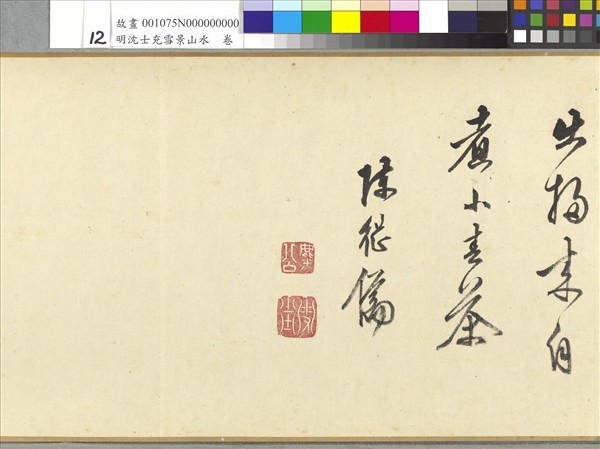 12
故畫 001075N000000000
明沈士充雪景山水　卷
出掃来自
煮小春茶
陳継儒